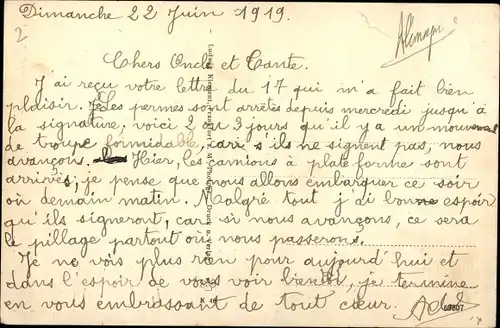 Dimanche 22 Juin 1919.
2
Chers Oncle et Tante.
J'ai reçu votre lettre du 17 qui m'a fait bien
plaisir. Les permes sont arrêtés depuis mercredi jusqu'à
la signature, voici 2 ou 3 jours qu'il y a un mouvement
de troupe formidable, car s'ils ne signent pas, nous
avançons. Hier, les camions à plateforme sont
arrivés, je pense que nous allons embarquer ce soir
où demain matin. Malgré tout j'ai bonne espoir
qu'ils signeront, care si nous avançons, ce sera
le pillage partout où nous passerons.
Je ne vois plus rien pour aujourd'hui et
dans l'espoir de vous voir bientôt, je termine
en vous embrassant de tout cœur.